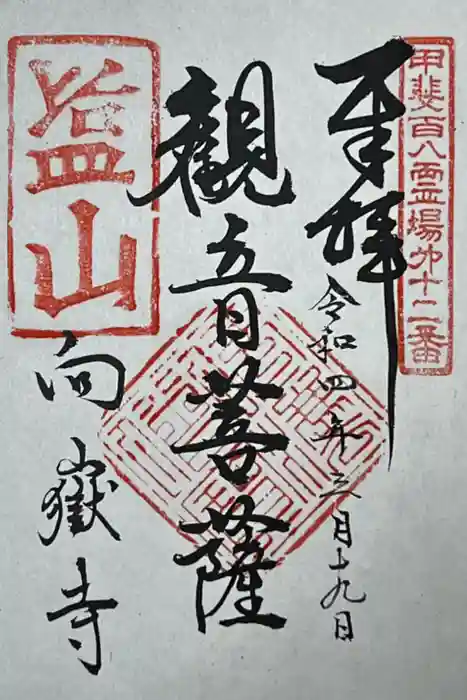 甲斐百八霊場㐧十二番
奉拝
令和四年三月十九日
觀音菩薩
塩山
向嶽寺